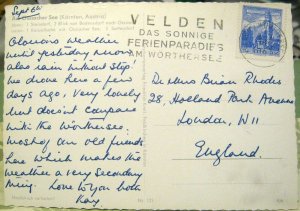 Ossiacher See (Kärnten, Austria)
VELDEN
DAS SONNIGE
FERIENPARADIES
AM WÖRTHERSEE
Glorious weather
until yesterday & now
also rain without stop!
We drove here a few
days ago, very lovely
but doesn't compare
with the Wörthersee.
Most of our old friends
here which makes the
weather a very secondary
thing. Love to you both
Kay.
Dr & Mrs Brian Rhodes
28, Holland Park Avenue
London, W11
England.
Nr. 121